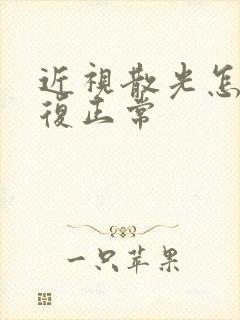 近視散光怎
復正常
一只苹果